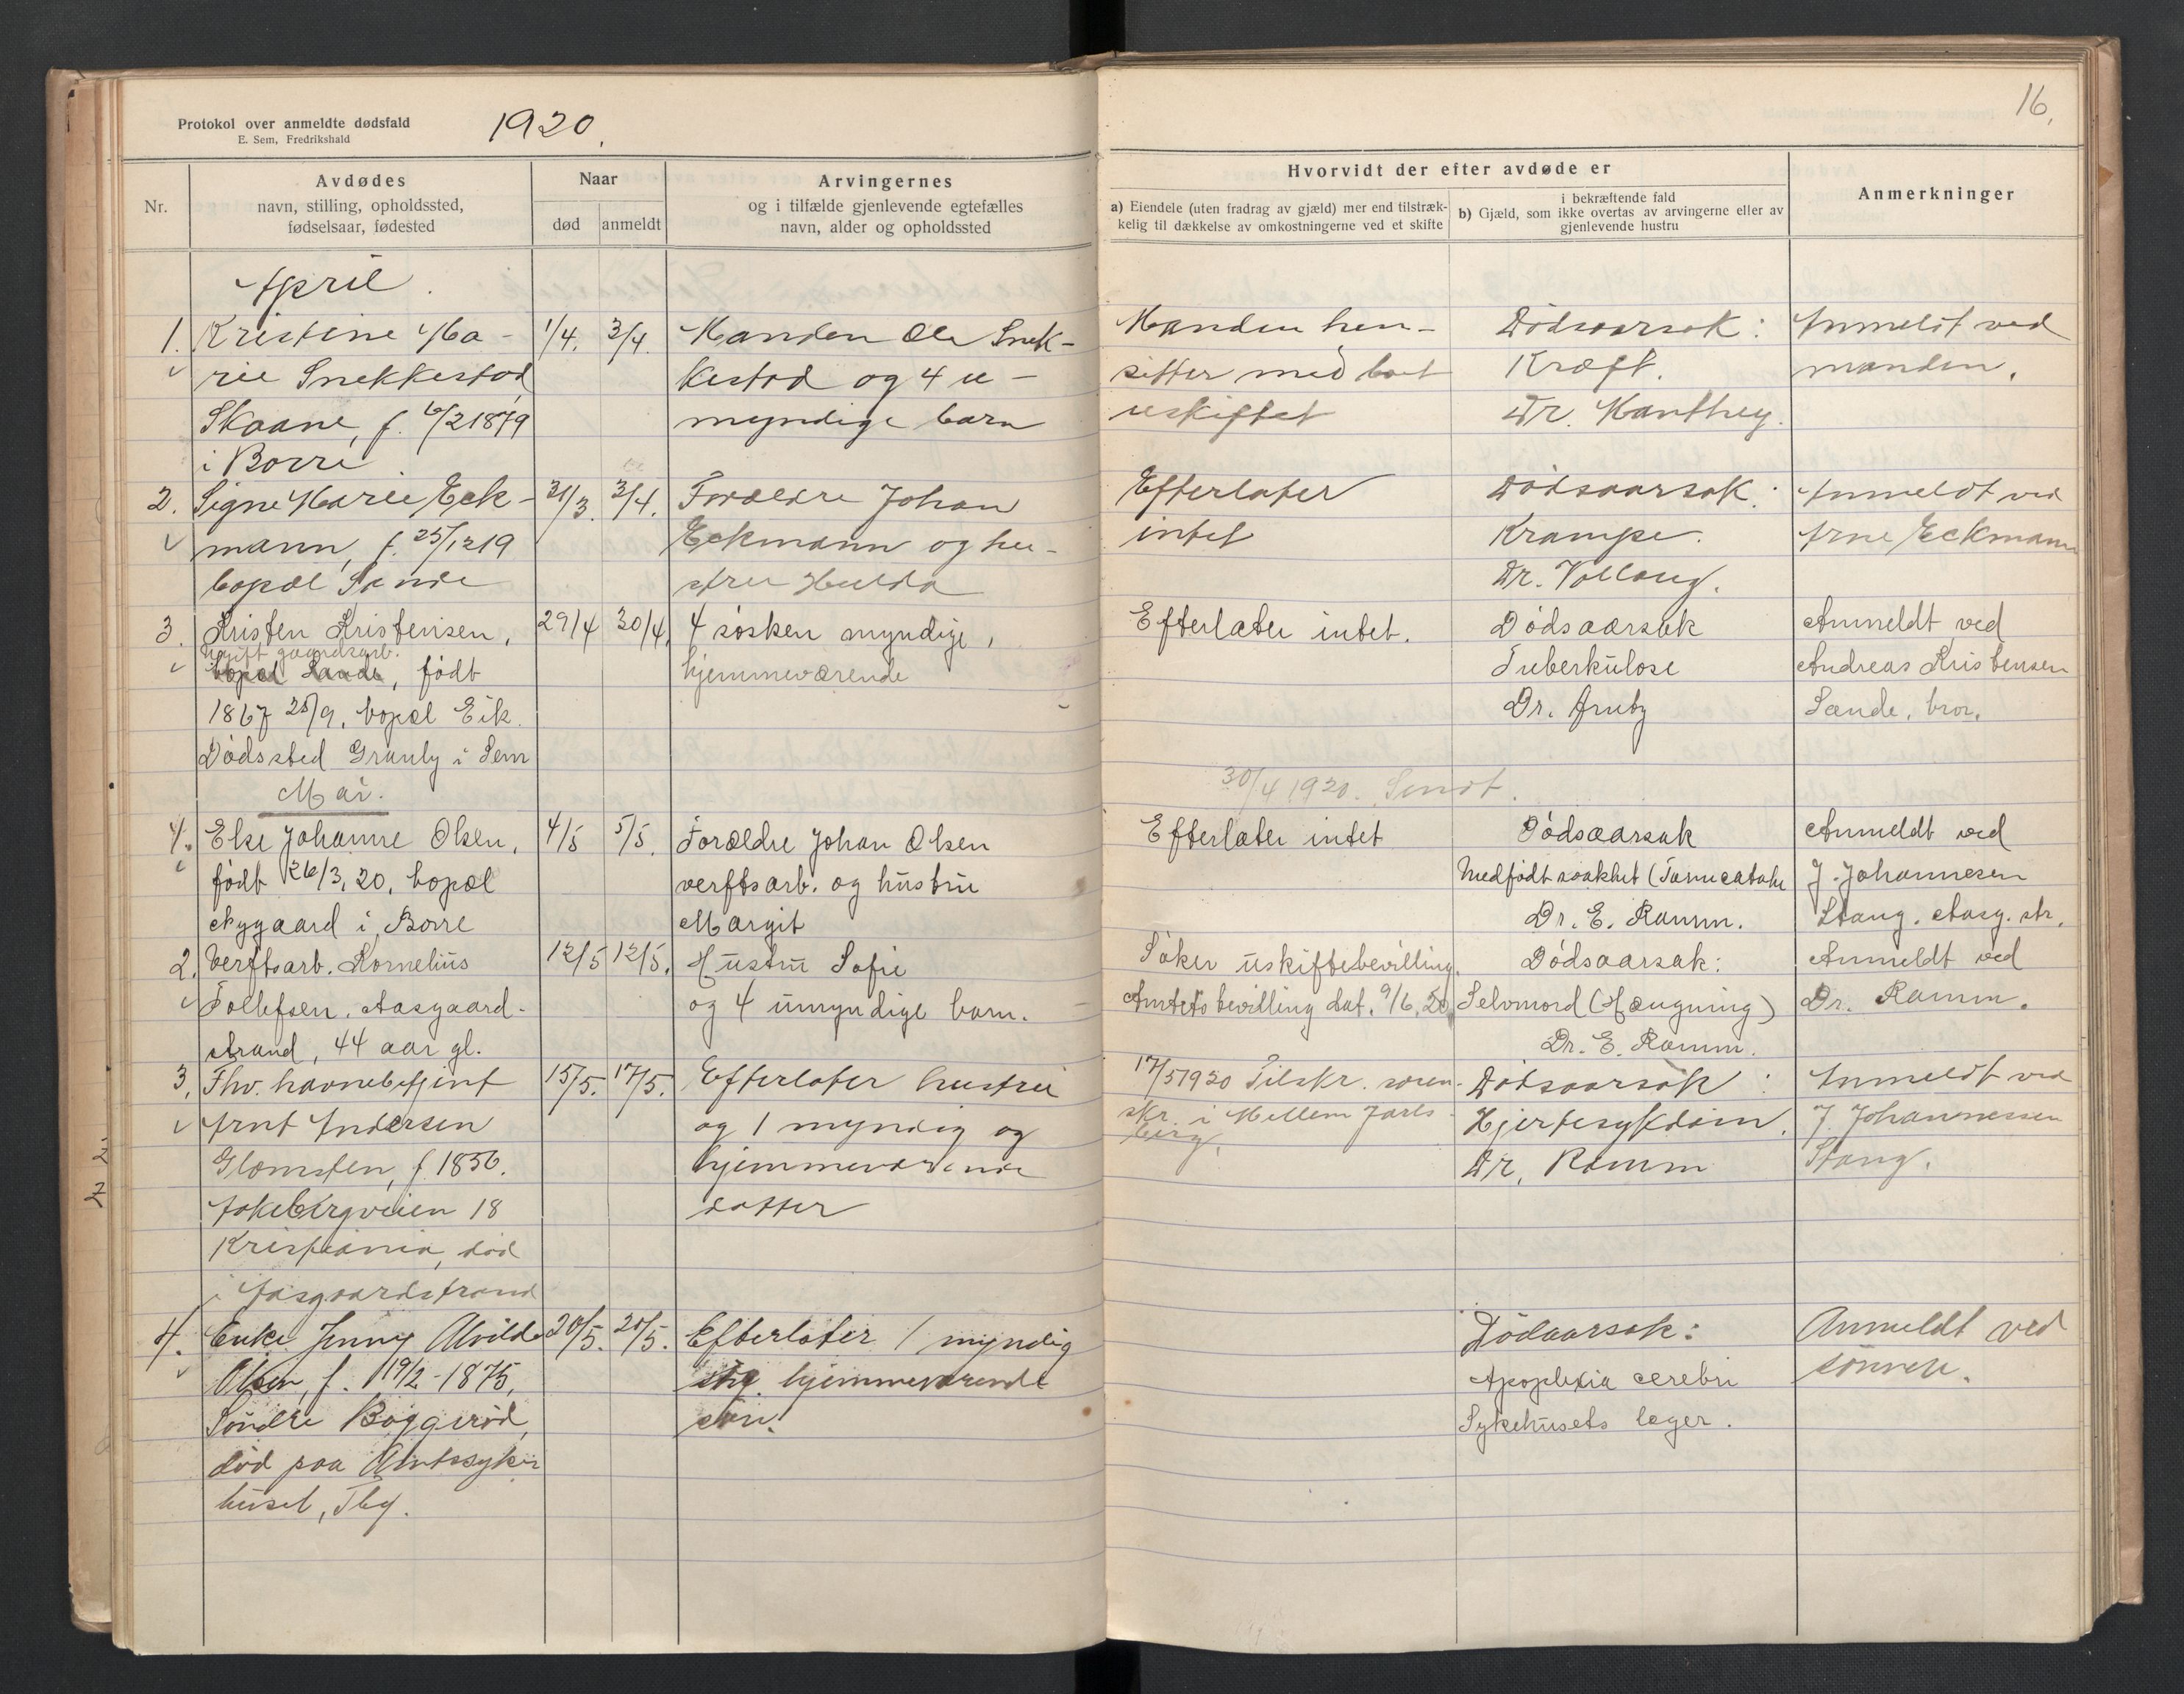 Protokol over anmeldte dødsfald
E. Sem, Fredrikshald
1920.
Nr.
Avdødes
navn, stilling, opholdssted,
fødselsaar, fødested
Naar
død
anmeldt
Arvingernes
og i tilfælde gjenlevende egtefælles
navn, alder og opholdssted
April.
1. Kristine Ma-
rie Snekkestad,
Skaane, f. 6/2 1879
i Borre
1/4. 3/4.
Manden Ole Snek-
kestad og 4 u-
myndige barn
2. Signe Marie Eck-
mann, f. 25/12 19
bopæl Sande
31/3. 3/4.
Forældre Johan
Eckmann og hu-
stru Hulda
3. Kristen Kristensen,
ugift gaardsarb.
bopæl Sande, født
1867 25/9, bopæl Eik.
Dødssted Granly i Sem
29/4 30/4.
4 søsken myndige,
hjemmeværende
Mai.
4. Else Johanne Olsen,
født 26/3, 20, bopæl
Nygaard i Borre
4/5 5/5.
Forældre Johan Olsen
verftsarb. og hustru
Margit
2. Verftsarb. Kornelius
Tollefsen, Aasgaard-
strand, 44 aar gl.
12/5 12/5.
Hustru Sofie
og 4 umyndige barn.
3. Fhv. havnebetjent
Arnt Andersen
Glomsten, f. 1856.
Akebergveien 18
Kristiania, død
i Aasgaardstrand
15/5. 17/5.
Efterlater hustru
og 1 myndig og
hjemmeværende
datter
4. Enke Jenny Alvilde
Olsen, f. 19/2-1875,
Søndre Boggerød,
død paa Amtssyke-
huset, Tbg.
20/5. 20/5.
Efterlater 1 myndig
hjemmeværende
søn.
16.
Hvorvidt der efter avdøde er
a) Eiendele (uten fradrag av gjæld) mer end tilstræk-
kelig til dækkelse av omkostningerne ved et skifte
i bekræftende fald
b) Gjæld, som ikke overtas av arvingerne eller av
gjenlevende hustru
Anmerkninger
Manden hen-
sitter med boet
uskiftet
Dødsaarsak:
Kræft.
Dr. Manthey.
Anmeldt ved
manden.
Efterlater
intet
Dødsaarsak:
Krampe.
Dr. Vollaug.
Anmeldt ved
Arne Eckmann
Efterlater intet.
Dødsaarsak
Tuberkulose
Dr.
Anmeldt ved
Andreas Kristensen
Sande, bror.
30/4 1920. Sendt.
Efterlater intet
Dødsaarsak
Medfødt svakhet
Dr. E. Ramm.
Anmeldt ved
J. Johannesen
Stang. Aasg. str.
Søker uskiftebevilling.
Amtets bevilling dat. 9/6, 20
Dødsaarsak:
Selvmord (Hængning)
Dr. E. Ramm.
Anmeldt ved
Dr. Ramm.
17/5 1920 Tilskr. soren-
skr. i Mellem Jarls-
berg.
Dødsaarsak:
Hjertesykdom.
Dr. Ramm
Anmeldt ved
J. Johannessen
Stang.
Dødaarsak:
Apoplexia cerebri
Sykehusets læger.
Anmeldt ved
sønnen.